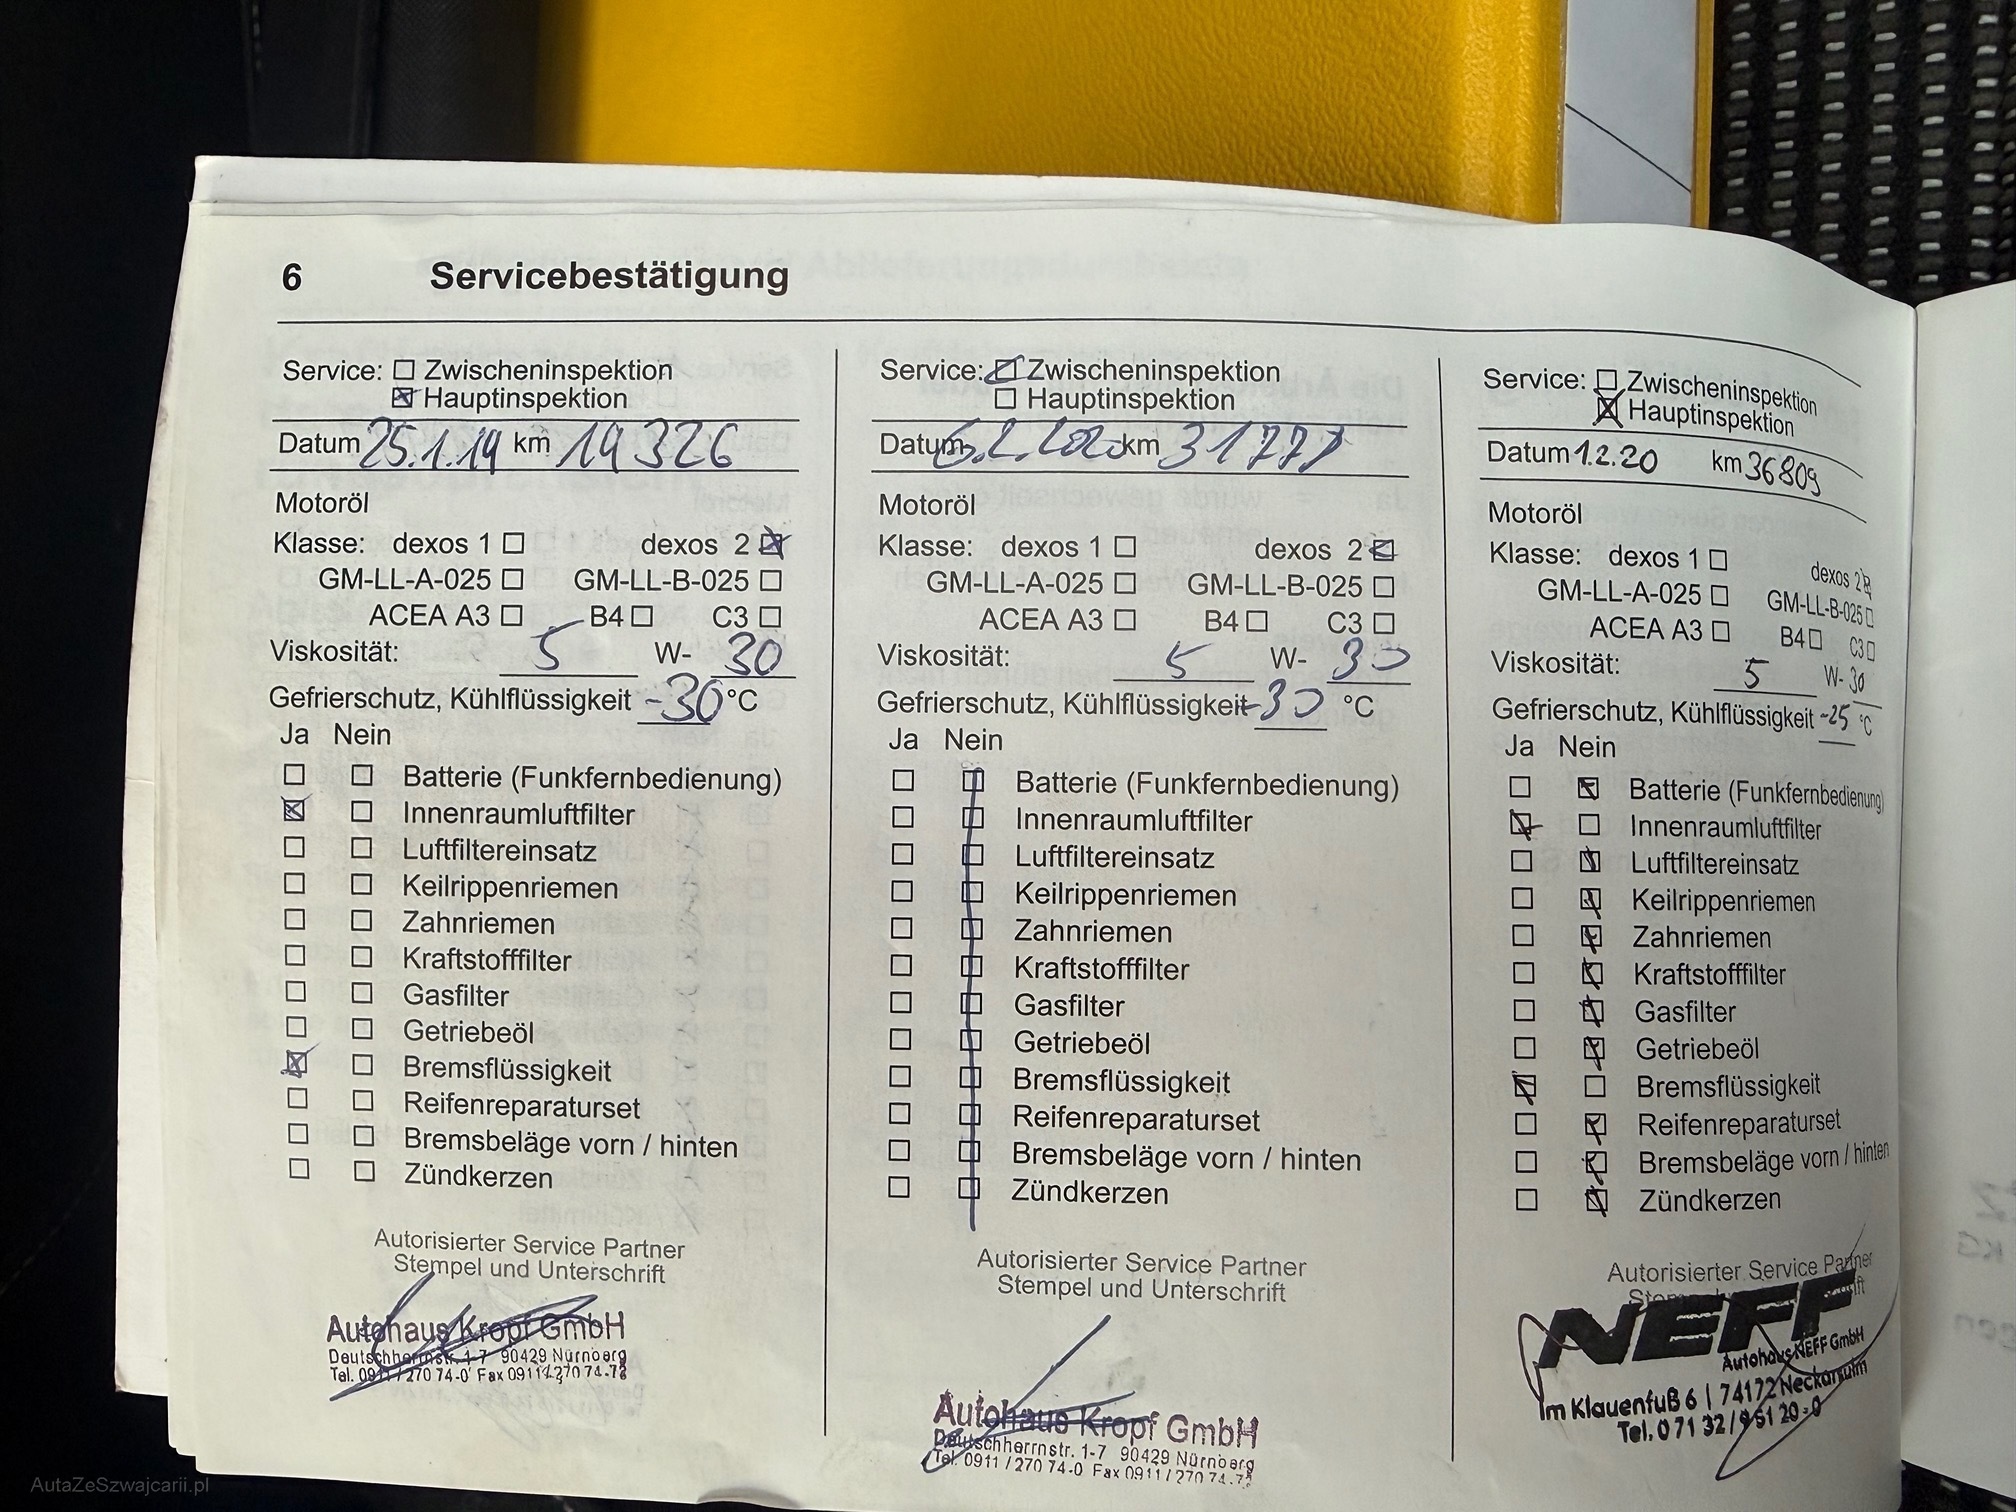 6 Servicebestätigung
Service: Zwischeninspektion
Hauptinspektion
Datum 25.1.19 km 19326
Motoröl
Klasse: dexos 1 dexos 2
GM-LL-A-025 GM-LL-B-025
ACEA A3 B4 C3
Viskosität: 5 W- 30
Gefrierschutz, Kühlflüssigkeit -30 °C
Ja Nein
Batterie (Funkfernbedienung)
Innenraumluftfilter
Luftfiltereinsatz
Keilrippenriemen
Zahnriemen
Kraftstofffilter
Gasfilter
Getriebeöl
Bremsflüssigkeit
Reifenreparaturset
Bremsbeläge vorn / hinten
Zündkerzen
Autorisierter Service Partner
Stempel und Unterschrift
Autohaus Kropf GmbH
Deutschherrnstr. 1-7 90429 Nürnberg
Tel. 0911 / 270 74-0 Fax 0911 / 270 74-72
Service: Zwischeninspektion
Hauptinspektion
Datum km
Motoröl
Klasse: dexos 1 dexos 2
GM-LL-A-025 GM-LL-B-025
ACEA A3 B4 C3
Viskosität: 5 W- 30
Gefrierschutz, Kühlflüssigkeit -30 °C
Ja Nein
Batterie (Funkfernbedienung)
Innenraumluftfilter
Luftfiltereinsatz
Keilrippenriemen
Zahnriemen
Kraftstofffilter
Gasfilter
Getriebeöl
Bremsflüssigkeit
Reifenreparaturset
Bremsbeläge vorn / hinten
Zündkerzen
Autorisierter Service Partner
Stempel und Unterschrift
Autohaus Kropf GmbH
Deutschherrnstr. 1-7 90429 Nürnberg
Tel. 0911 / 270 74-0 Fax 0911 / 270 74-72
Service: Zwischeninspektion
Hauptinspektion
Datum 1.2.20 km 36809
Motoröl
Klasse: dexos 1 dexos 2
GM-LL-A-025 GM-LL-B-025
ACEA A3 B4 C3
Viskosität: 5 W- 30
Gefrierschutz, Kühlflüssigkeit -25 °C
Ja Nein
Batterie (Funkfernbedienung)
Innenraumluftfilter
Luftfiltereinsatz
Keilrippenriemen
Zahnriemen
Kraftstofffilter
Gasfilter
Getriebeöl
Bremsflüssigkeit
Reifenreparaturset
Bremsbeläge vorn / hinten
Zündkerzen
Autorisierter Service Partner
NEFF
Autohaus NEFF GmbH
Im Klauenfuß 6 | 74172 Neckarsulm
Tel. 0 71 32 / 9 51 20 - 0
AutaZeSzwajcarii.pl